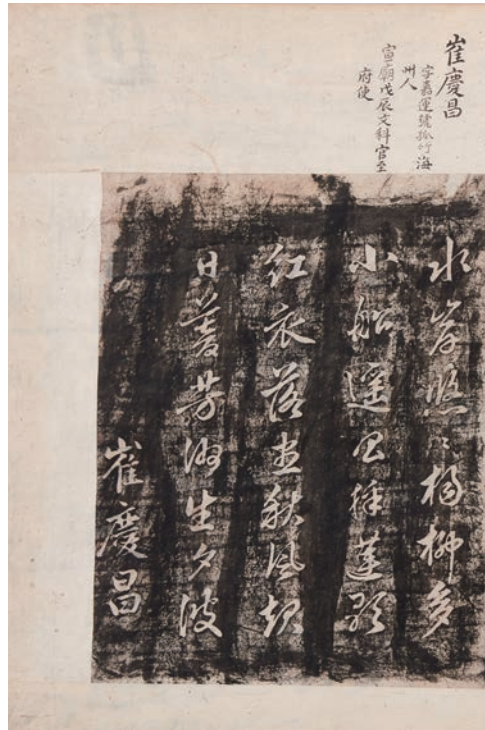 崔慶昌
字嘉運號孤竹海
州人
宣廟戊辰文科官至
府使
水岸悠々楊柳多
小船遥唱採蓮歌
紅衣落盡秋風起
日暮芳洲生夕波
崔慶昌